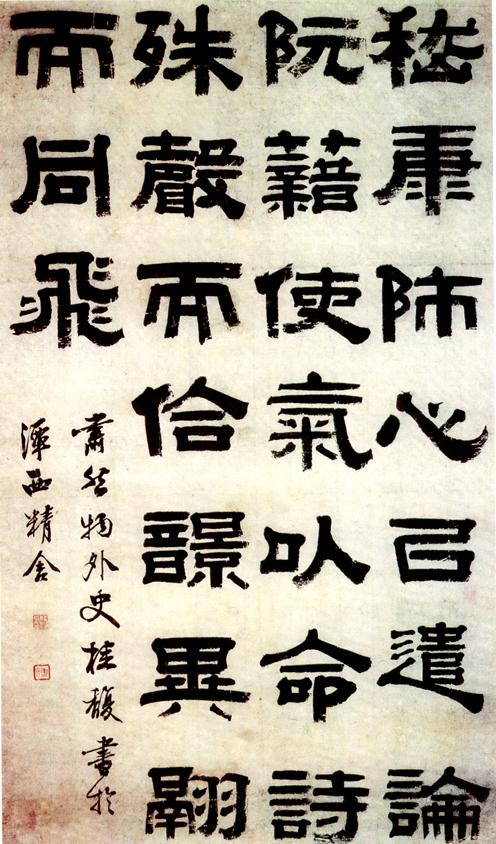 嵇康師心㠯遣論
阮藉使氣㕥命詩
殊聲而合響異翮
而同飛
肅然物外史桂馥書於
潭西精舍